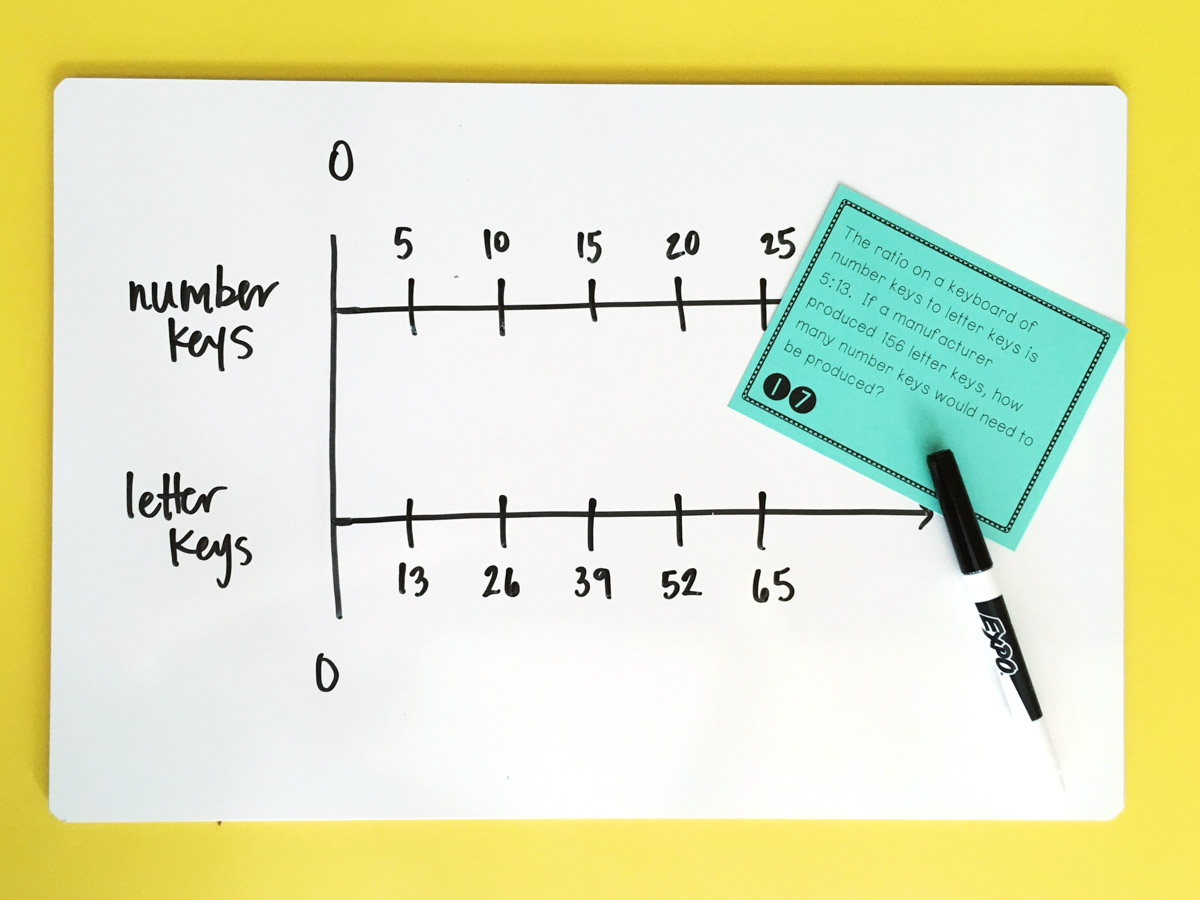 0
5 10 15 20 25
number
keys
letter
keys
13 26 39 52 65
0
The ratio on a keyboard of
number keys to letter keys is
5:13. If a manufacturer
produced 156 letter keys, how
many number keys would need to
be produced?
17
EXPO